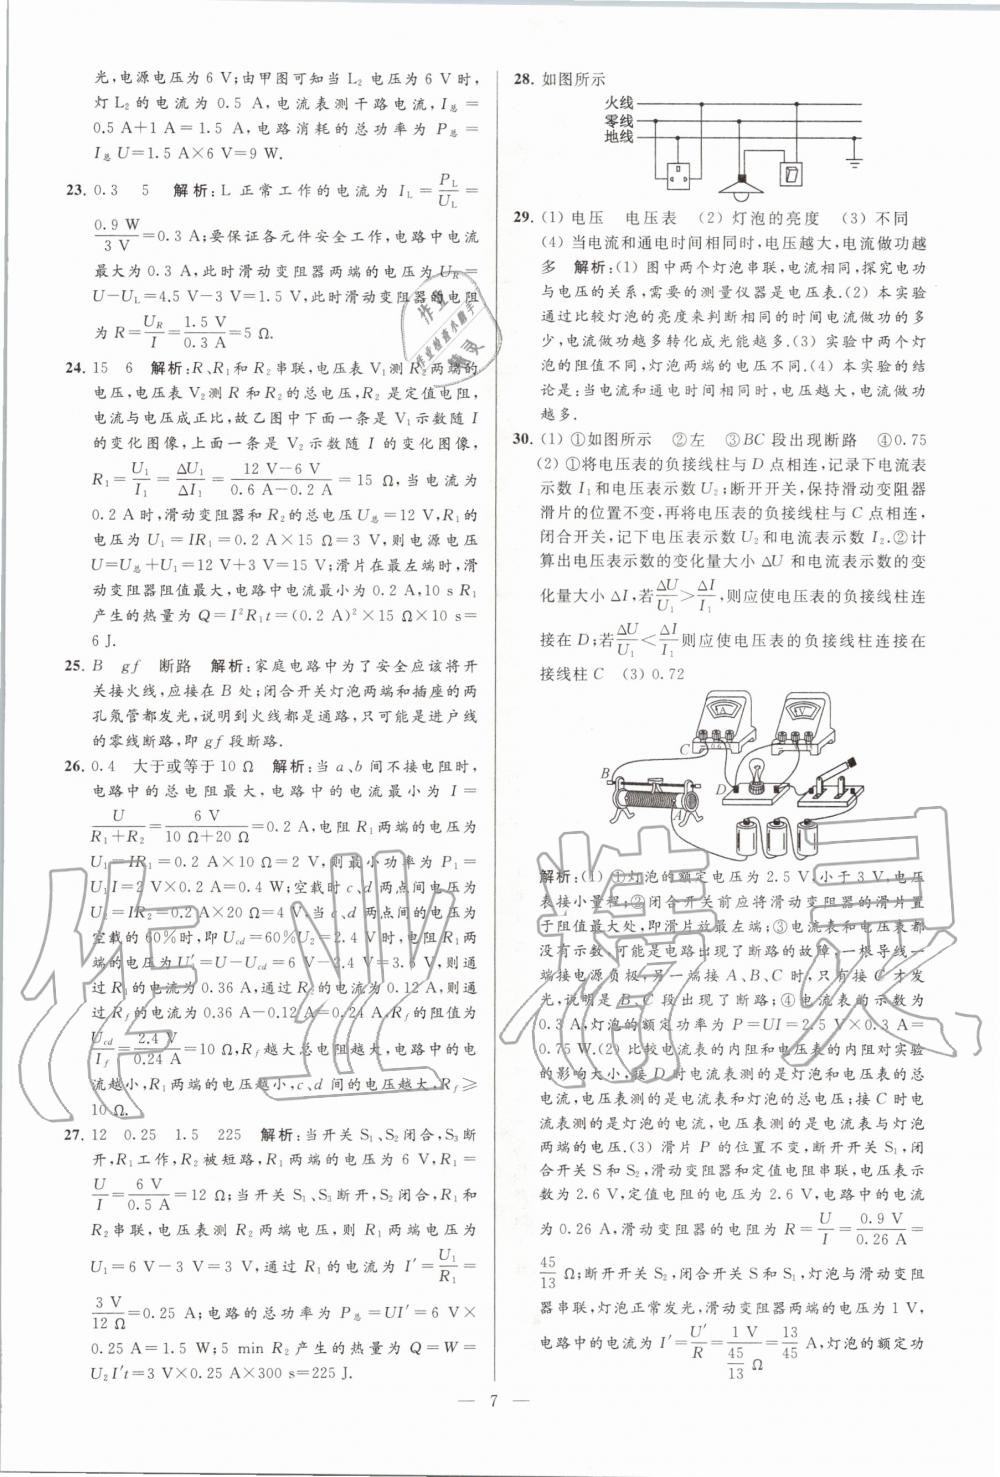 光,电源电压为 6 V;由甲图可知当 L₂ 电压为 6 V 时,
灯 L₂ 的电流为 0.5 A,电流表测干路电流,I总 =
0.5 A+1 A=1.5 A,电路消耗的总功率为 P总 =
I总U=1.5 A×6 V=9 W.
23. 0.3 5 解析:L 正常工作的电流为 I_L = P_L/U_L =
0.9 W/3 V=0.3 A;要保证各元件安全工作,电路中电流
最大为 0.3 A,此时滑动变阻器两端的电压为 U_R =
U−U_L=4.5 V−3 V=1.5 V,此时滑动变阻器的电阻
为 R=U_R/I=1.5 V/0.3 A=5 Ω.
24. 15 6 解析:R、R₁和 R₂串联,电压表 V₁测 R₂两端的
电压,电压表 V₂测 R 和 R₂的总电压,R₂ 是定值电阻,
电流与电压成正比,故乙图中下面一条是 V₁示数随 I
的变化图像,上面一条是 V₂示数随 I 的变化图像,
R₁=U₁/I₁=ΔU₁/ΔI₁=(12 V−6 V)/(0.6 A−0.2 A)=15 Ω,当电流为
0.2 A时,滑动变阻器和 R₂的总电压U总=12 V,R₁的
电压为 U₁=IR₁=0.2 A×15 Ω=3 V,则电源电压
U=U总+U₁=12 V+3 V=15 V;滑片在最左端时,滑
动变阻器阻值最大,电路中电流最小为 0.2 A,10 s R₁
产生的热量为 Q=I²R₁t=(0.2 A)²×15 Ω×10 s=
6 J.
25. B gf 断路 解析:家庭电路中为了安全应该将开
关接火线,应接在 B 处;闭合开关灯泡两端和插座的两
孔氖管都发光,说明到火线都是通路,只可能是进户线
的零线断路,即 gf 段断路.
26. 0.4 大于或等于 10 Ω 解析:当 a、b 间不接电阻时,
电路中的总电阻最大,电路中的电流最小为 I =
U/(R₁+R₂)=6 V/(10 Ω+20 Ω)=0.2 A,电阻 R₁ 两端的电压为
U₁=IR₁=0.2 A×10 Ω=2 V,则最小功率为 P₁=
U₁I=2 V×0.2 A=0.4 W;空载时 c、d 两点间电压为
U₂=IR₂=0.2 A×20 Ω=4 V,当 c、d 两点间的电压为
空载的 60%时,即 U_cd=60%U₂=2.4 V 时,电阻 R₁ 两
端的电压为 U₁′=U−U_cd=6 V−2.4 V=3.6 V,则通
过 R₁的电流为 0.36 A,通过 R₂的电流为 0.12 A,则通
过 R_f 的电流为 0.36 A−0.12 A=0.24 A,R_f 的阻值为
U_cd/I_f=2.4 V/0.24 A=10 Ω,R_f 越大总电阻越大,电路中的电
流越小,R₁两端的电压越小,c、d 间的电压越大,R_f⩾
10 Ω.
27. 12 0.25 1.5 225 解析:当开关 S₁、S₂闭合,S₃断
开,R₁工作,R₂ 被短路,R₁ 两端的电压为 6 V,R₁=
U/I=6 V/0.5 A=12 Ω;当开关 S₁、S₃断开,S₂闭合,R₁和
R₂串联,电压表测 R₂ 两端电压,则 R₁ 两端电压为
U₁=6 V−3 V=3 V,通过 R₁ 的电流为 I′=U₁/R₁=
3 V/12 Ω=0.25 A;电路的总功率为 P总=UI′=6 V×
0.25 A=1.5 W;5 min R₂产生的热量为 Q=W=
U₂I′t=3 V×0.25 A×300 s=225 J.
28. 如图所示
火线
零线
地线
29. (1) 电压 电压表 (2) 灯泡的亮度 (3) 不同
(4) 当电流和通电时间相同时,电压越大,电流做功越
多 解析:(1) 图中两个灯泡串联,电流相同,探究电功
与电压的关系,需要的测量仪器是电压表.(2) 本实验
通过比较灯泡的亮度来判断相同的时间电流做功的多
少,电流做功越多转化成光能越多.(3) 实验中两个灯
泡的阻值不同,两灯泡两端的电压不同.(4) 本实验的结
论是:当电流和通电时间相同时,电压越大,电流做功
越多.
30. (1) ①如图所示 ②左 ③BC 段出现断路 ④0.75
(2) ①将电压表的负接线柱与 D 点相连,记录下电流表
示数 I₁和电压表示数 U₂;断开开关,保持滑动变阻器
滑片的位置不变,再将电压表的负接线柱与 C 点相连,
闭合开关,记下电压表示数 U₂ 和电流表示数 I₂.②计
算出电压表示数的变化量大小 ΔU 和电流表示数的变
化量大小 ΔI,若ΔU/U₁>ΔI/I₁,则应使电压表的负接线柱连
接在 D;若ΔU/U₁<ΔI/I₁则应使电压表的负接线柱连接在
接线柱 C (3) 0.72
A
V
C
B
D
A
解析:(1) ①灯泡的额定电压为 2.5 V,小于 3 V,电压
表接小量程;②闭合开关前应将滑动变阻器的滑片置
于阻值最大处,即滑片在最左端;③电流表和电压表都
没有示数,可能是电路出现了断路的故障,一根导线一
端接电源负极,另一端接 A、B、C 时,只有接 C 才发
光,说明是 B、C 段出现了断路;④电流表的示数为
0.3 A,灯泡的额定功率为 P=UI=2.5 V×0.3 A=
0.75 W.(2) 比较电流表的内阻和电压表内阻对实验
的影响大小,接 D 时电流表测的是灯泡和电压表的总
电流,电压表测的是电流表和灯泡的总电压;接 C 时电
流表测的是灯泡的电流,电压表测的是电流表与灯泡
两端的电压.(3) 滑片 P 的位置不变,断开开关 S₁,闭
合开关 S和 S₂,滑动变阻器和定值电阻串联,电压表示
数为 2.6 V,定值电阻的电压为 2.6 V,电路中的电流
为 0.26 A,滑动变阻器的电阻为 R=U/I=0.9 V/0.26 A=
45/13 Ω;断开开关 S₂,闭合开关 S和 S₁,灯泡与滑动变阻
器串联,灯泡正常发光,滑动变阻器的电压为 1 V,
电路中的电流为 I′=U′/R=1 V/(45/13 Ω)=13/45 A,灯泡的额定功
作业
作业检查小助手
精灵
作业精灵
— 7 —